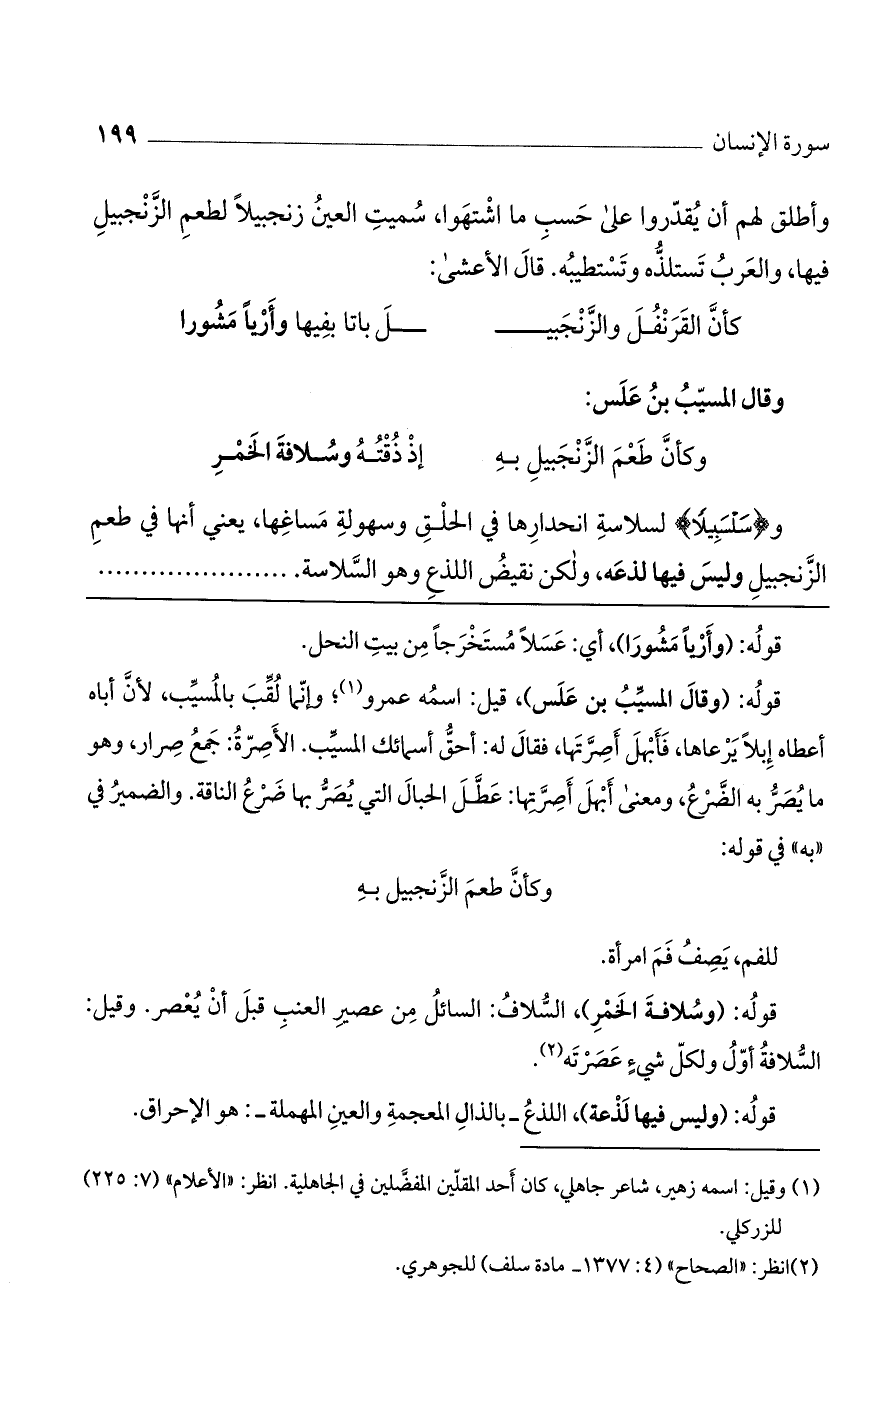 سورة الإنسان ١٩٩
وأطلق لهم أن يُقدّروا علىٰ حَسبِ ما اشْتهَوا، سُميتِ العينُ زنجبيلاً لطعمِ الزَّنْجبيلِ
فيها، والعَربُ تَستلذُّه وتَسْتطيبُه. قالَ الأعشىٰ:
كأنَّ القَرَنْفُـلَ والزَّنْجَبيـــــــ ـــــــلَ باتا بفِيها وأَرْياً مَشُورا
وقال المسيّبُ بنُ عَلَس:
وكأنَّ طَعْمَ الزَّنْجَبيلِ بـهِ إذْ ذُقْتُـهُ وسُـلافةَ الخَمْـرِ
و﴿سَلْسَبِيلًا﴾ لسلاسةِ انحدارِها في الحلْـقِ وسهولةِ مَساغِها، يعني أنها في طعمِ
الزَّنجبيلِ وليسَ فيها لذعَه، ولٰكن نقيضُ اللذعِ وهو السَّلاسة. ......................
قولُه: (وأَرْياً مَشُورَا)، أي: عَسَلاً مُستَخْرَجاً مِن بيتِ النحل.
قولُه: (وقالَ المسيِّبُ بن عَلَس)، قيل: اسمُه عمرو(١)؛ وإنّما لُقِّبَ بالمُسيِّب، لأنَّ أباه
أعطاه إبلاً يَرْعاها، فَأَبْهلَ أَصِرَّتَها، فقالَ له: أحقُّ أسمائك المسيِّب. الأَصِرّةُ: جَمعُ صِرار، وهو
ما يُصَرُّ به الضَّرْعُ، ومعنىٰ أبْهلَ أَصِرَّتِها: عَطَّـلَ الحبالَ التي يُصَرُّ بها ضَرْعُ الناقة. والضميرُ في
«به» في قوله:
وكأنَّ طعمَ الزَّنجبيل بـهِ
للفم، يَصِفُ فَمَ امرأة.
قولُه: (وسُلافـةَ الخَمْرِ)، السُّلافُ: السائلُ مِن عصيرِ العنبِ قبلَ أنْ يُعْصر. وقيل:
السُّلافةُ أوّلُ ولكلّ شيءٍ عَصَرْتَه(٢).
قولُه: (وليس فيها لَذْعة)، اللذعُ ـ بالذالِ المعجمةِ والعينِ المهملة ـ: هو الإحراق.
(١) وقيل: اسمه زهير، شاعر جاهلي، كان أحد المقلّين المفضَّلين في الجاهلية. انظر: «الأعلام» (٧: ٢٢٥)
للزركلي.
(٢)انظر: «الصحاح» (٤: ١٣٧٧ـ مادة سلف) للجوهري.